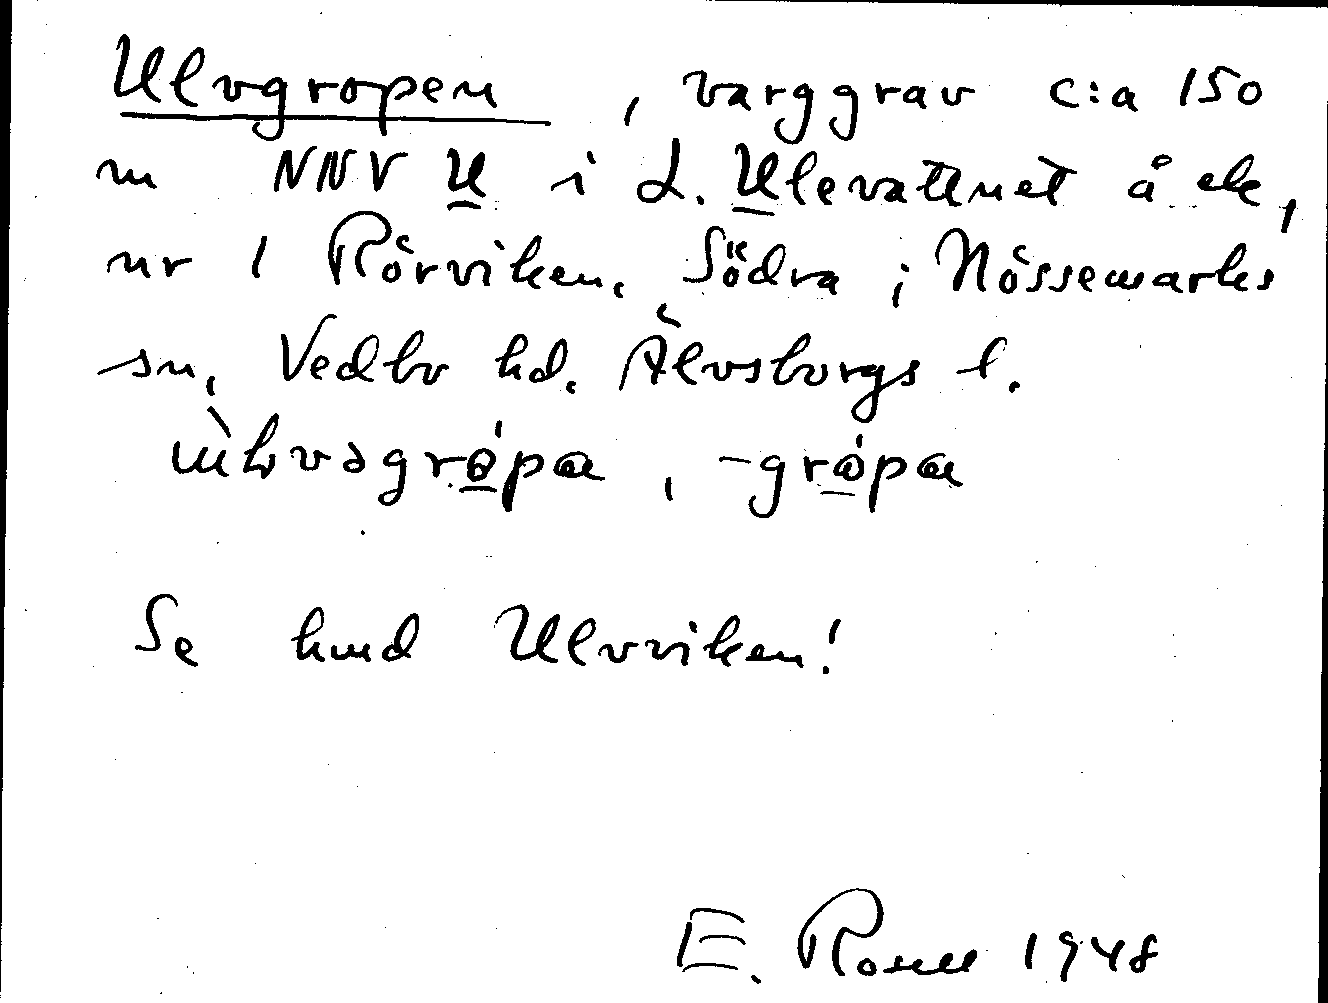 Ulvgropen , varggrav c:a 150
m NNV U i L. Ulevattnet å ek,
nr 1 Rörviken, Södra ; Nössemarks
sn, Vedbo hd. Älvsborgs l.
-gròpa
Se hmd Ulvviken!
E. Rosell 1948